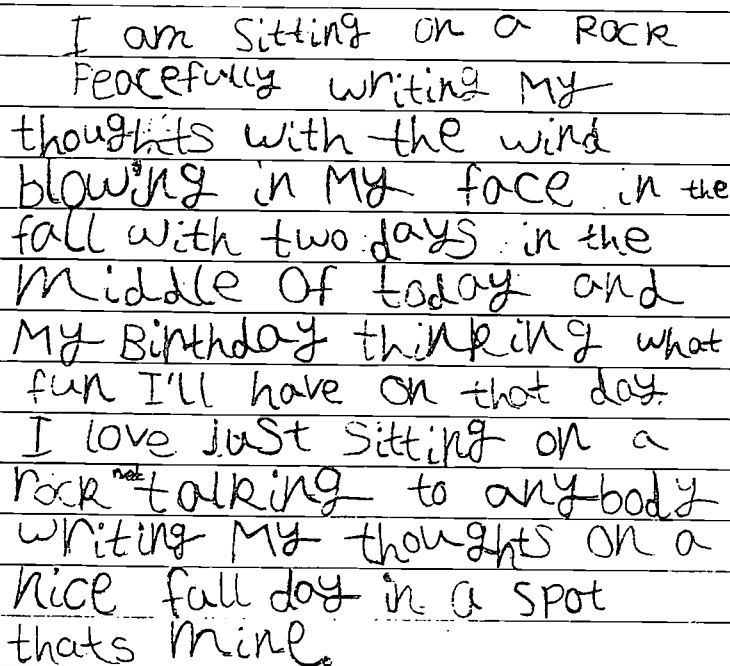 I am Sitting on a Rock
Peacefully writing My
thoughts with the wind
blowing in My face in the
fall with two days in the
Middle Of today and
My Birthday thinking what
fun I'll have on that day.
I love just Sitting on a
rock not talking to anybody
writing My thoughts on a
nice fall day in a spot
thats Mine.